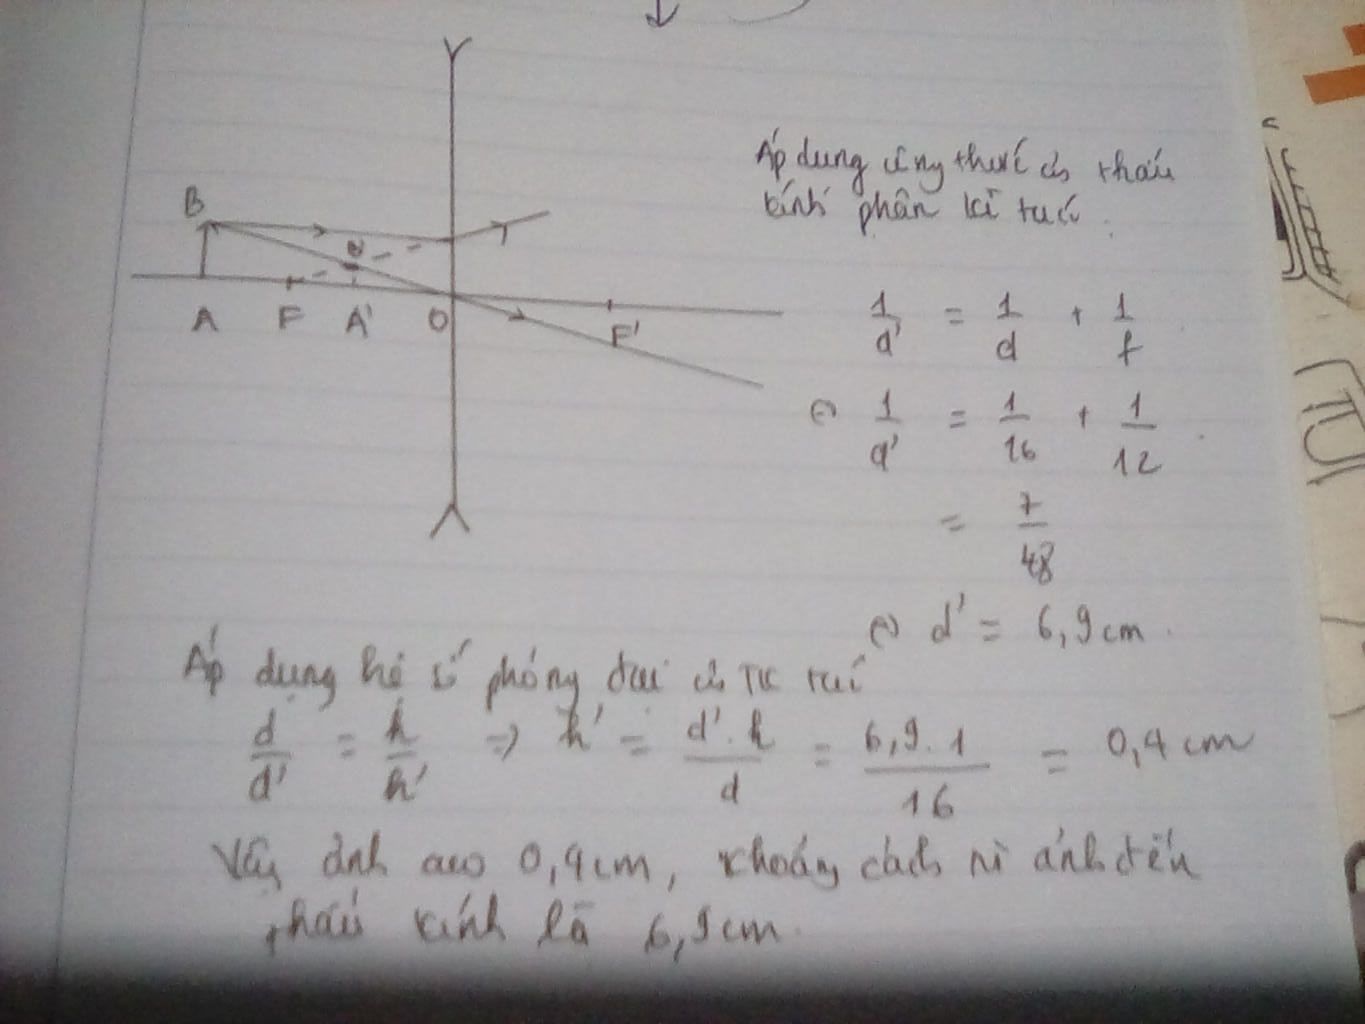 B
A F A' O F'
Áp dụng công thức của thấu
kính phân kì ta có
1/d' = 1/d + 1/f
<=> 1/d' = 1/16 + 1/12
= 7/48
<=> d' = 6,9cm.
Áp dụng hệ số phóng đại của TK ta có
d/d' = h/h' => h' = d'.h/d = 6,9.1/16 = 0,4 cm
Vậy ảnh cao 0,4cm, khoảng cách từ ảnh đến
thấu kính là 6,9cm.